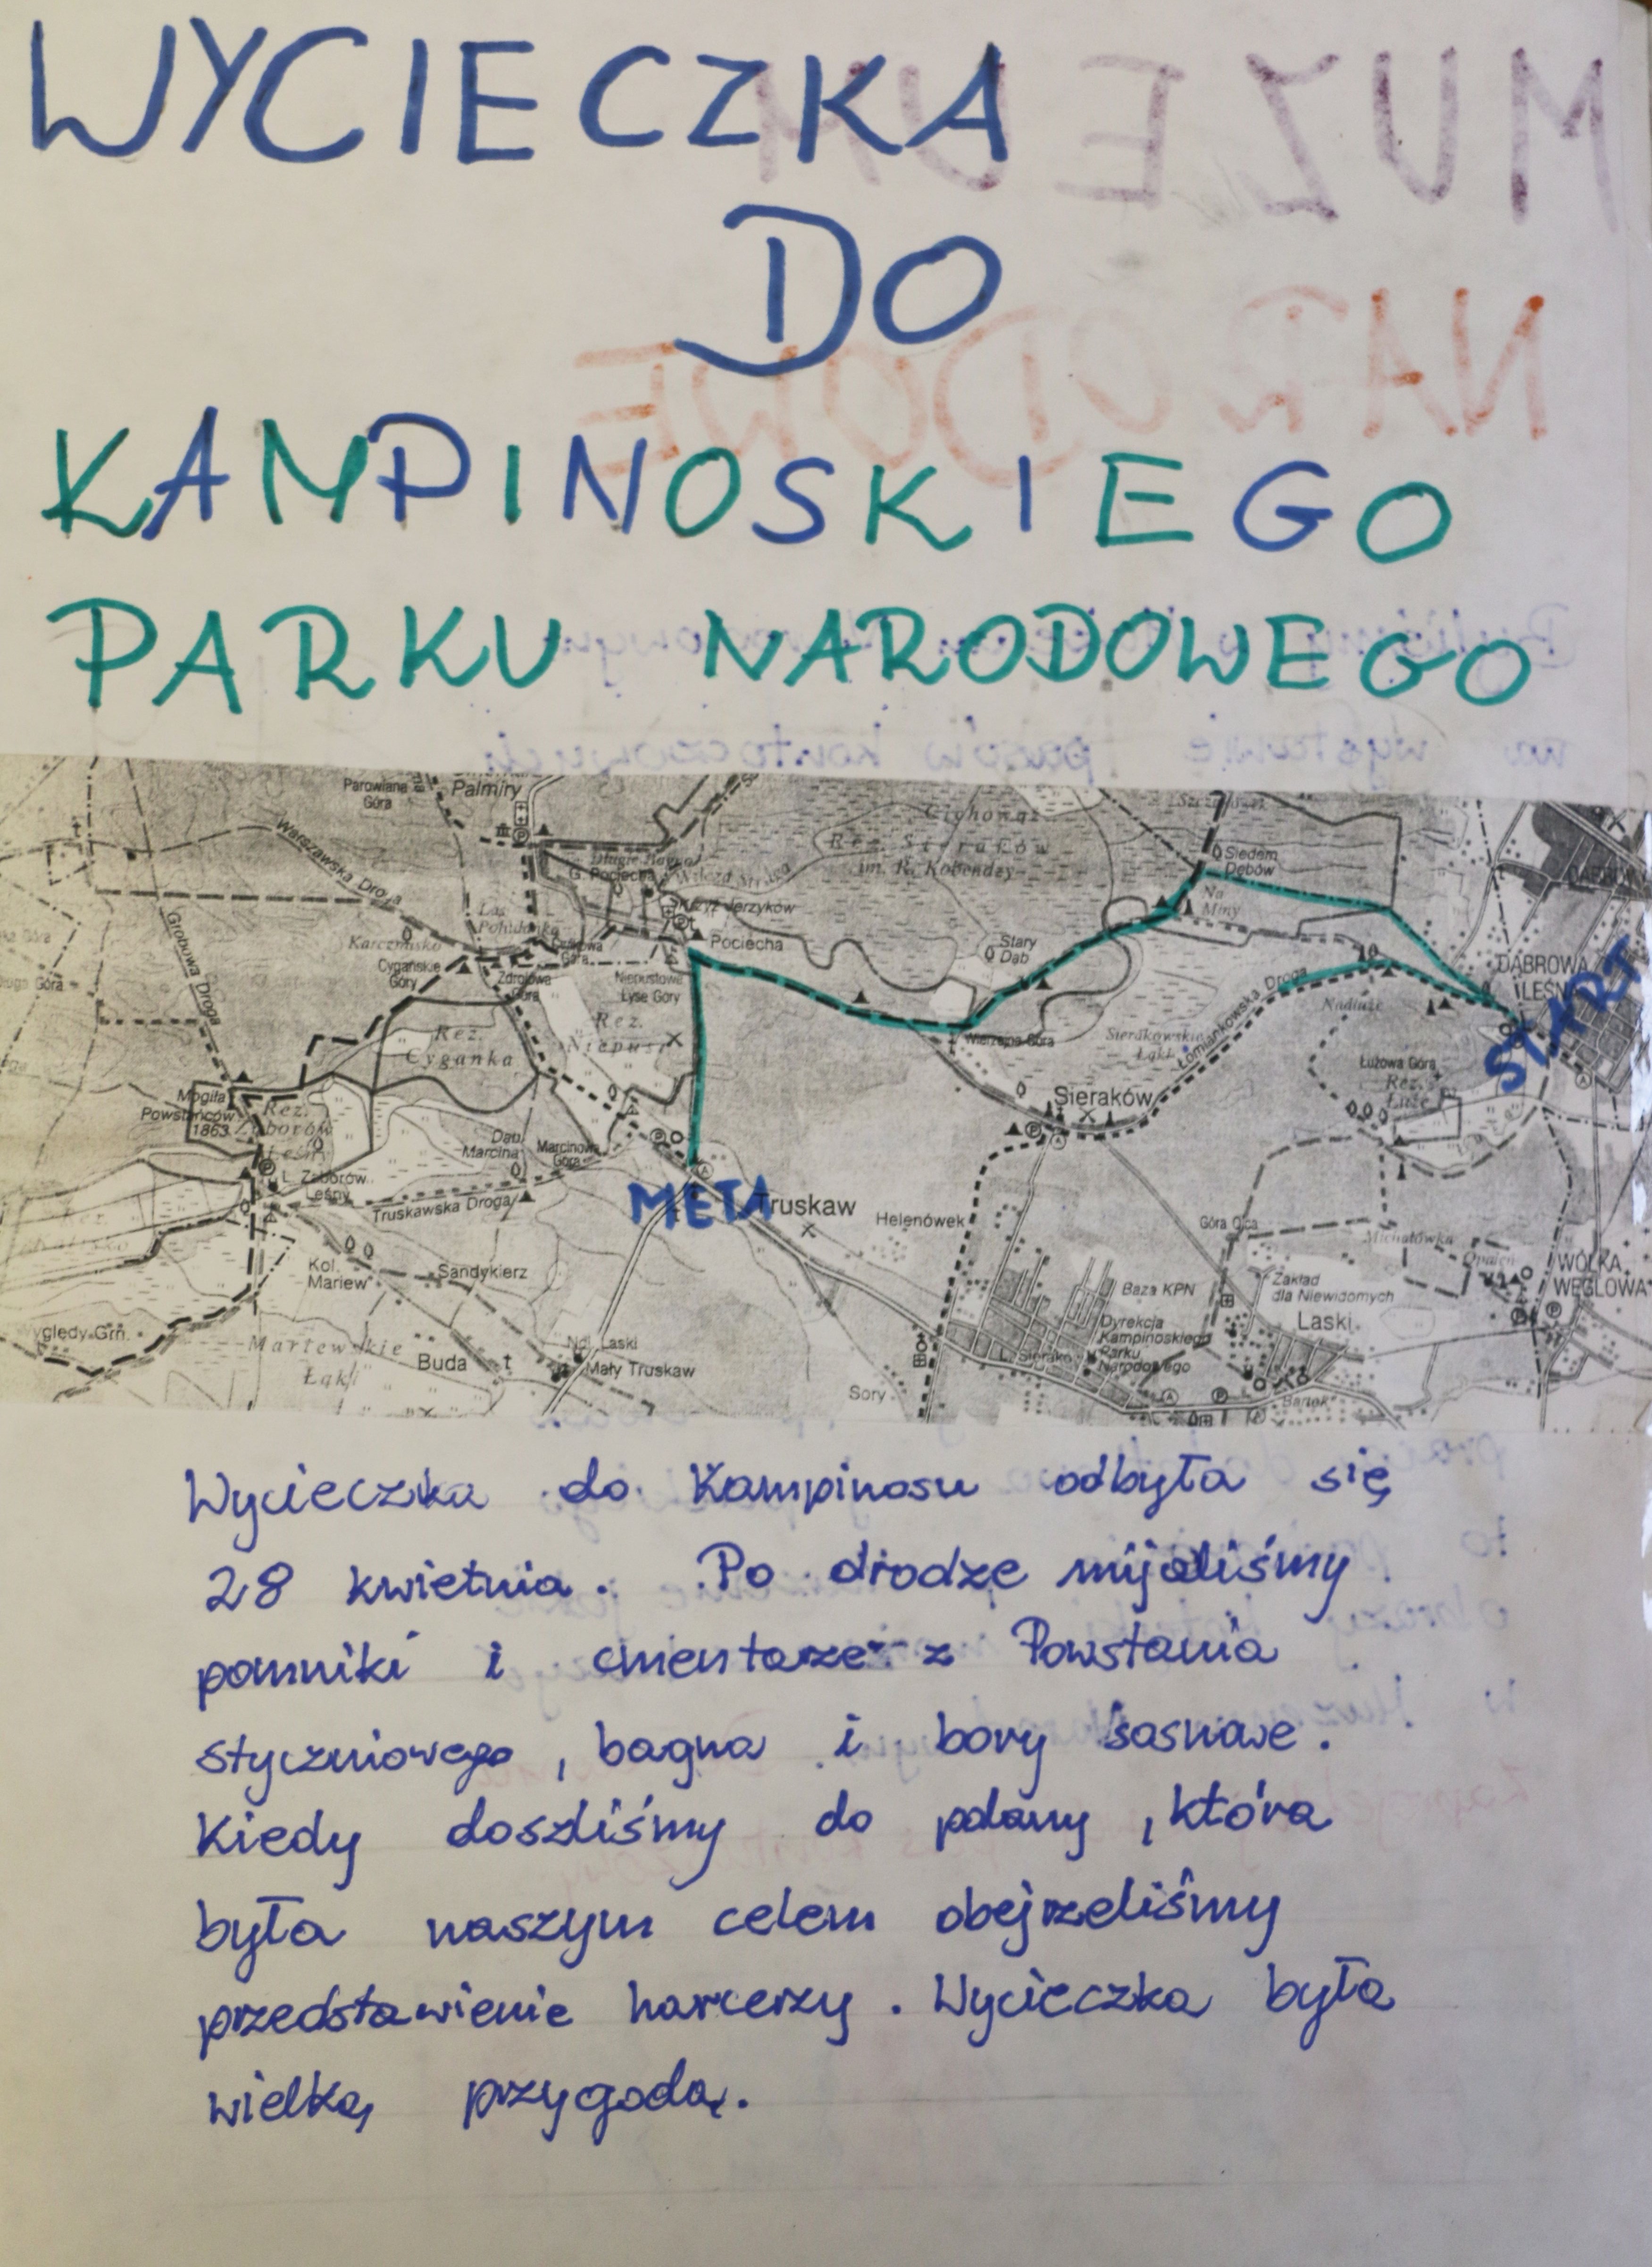 WYCIECZKA
DO
KAMPINOSKIEGO
PARKU NARODOWEGO
Parowiana Góra
Palmiry
Warszawska Droga
Grobowa Droga
Długie Bagno
G. Pociecha
Krzyż Jerzyków
Pociecha
Karczmisko
Cygańskie Góry
Zdrojowa Góra
Niepustowe
Łyse Góry
Rez. Cyganka
Rez. Niepust
Cichowąż
Rez. Sieraków
im. R. Kobendzy
Siedem Dębów
Na Miny
Stary Dąb
Wierzejna Góra
Sierakowskie Łąki
Łomiankowska Droga
Nadłuże
DĄBROWA LEŚNA
START
Łużowa Góra
Rez. Łuże
Sieraków
Mogiła Powstańców 1863
Rez. Zaborów Leśny
L. Zaborów Leśny
Dąb Marcina
Marcinowa Góra
Truskawska Droga
META
Truskaw
Helenówek
Góra Ojca
Michałówka
Opaleń
WÓLKA WĘGLOWA
Kol. Mariew
Sandykierz
Baza KPN
Zakład dla Niewidomych
Dyrekcja Kampinoskiego Parku Narodowego
Laski
L. Sieraków
Mariewskie Łąki
Buda
Ndl. Laski
Mały Truskaw
Sory
Wycieczka do Kampinosu odbyła się
28 kwietnia. Po drodze mijaliśmy
pomniki i cmentarze z Powstania
styczniowego, bagna i bory sosnowe.
Kiedy doszliśmy do polany, która
była naszym celem obejrzeliśmy
przedstawienie harcerzy. Wycieczka była
wielką przygodą.